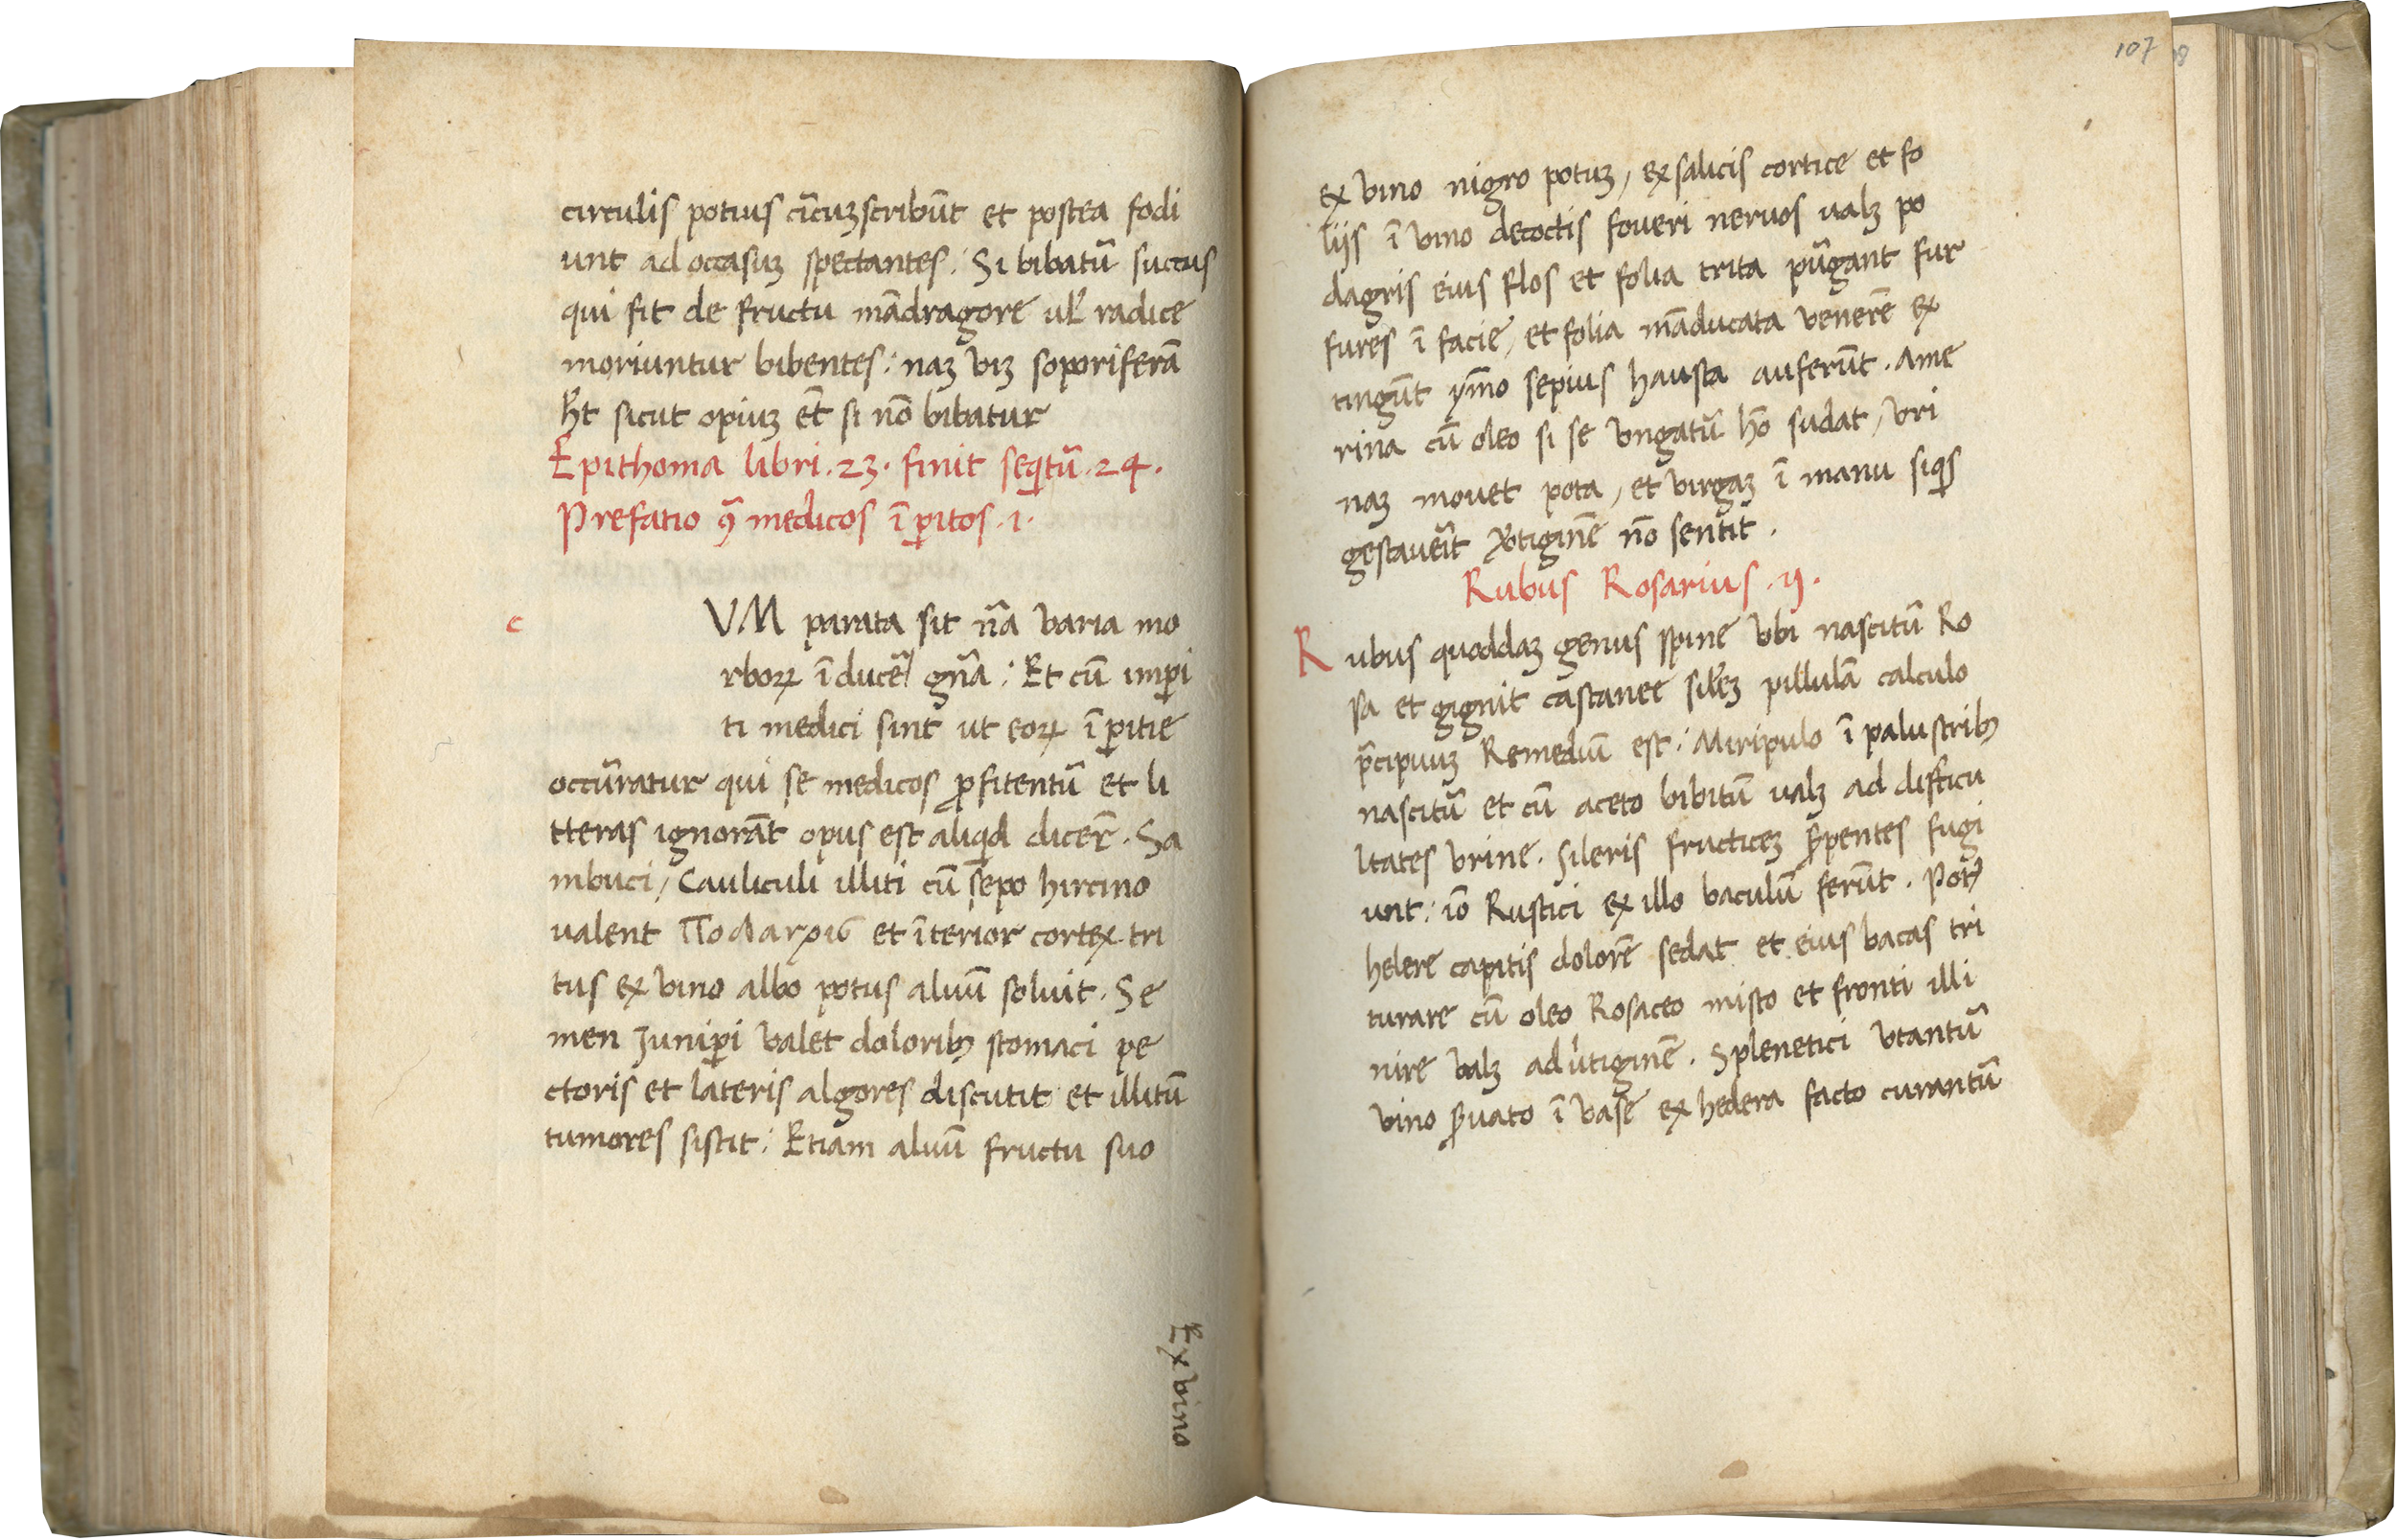 circulis potius cĩcuꝫscribũt et postea fodi
unt ad occasuꝫ spectantes. Si bibatũ succus
qui fit de fructu mãdragore ul' radice
moriuntur bibentes: naꝫ viꝫ soporiferã
hñt sicut opiuꝫ et̃ si nõ bibatur
Epithoma libri .23. finit seqitũ .24.
Prefatio ꝯ̃ medicos ĩꝑitos .1.
c
VM parata sit nr̃a varia mo
rboꝝ ĩducẽ gñã: Et cũ imꝑi
ti medici sint ut eoꝝ ĩꝑitie
occũratur qui se medicos ꝓfitentũ et li
tteras ignorãt opus est aliqid dicer̃. Sa
mbuci, Cauliculi illiti cũ sepo hircino
valent Ποdαrχιϭ et ĩterior cortex tri
tus ex vino albo potus aluũ soluit. Se
men Juniꝑi valet doloribꝫ stomaci pe
ctoris et lateris algores discutit et illitũ
tumores sistit: Etiam aluũ fructu suo
Ex vino
107
ex vino nigro potuꝫ, ex salicis cortice et fo
liis ĩ vino decoctis foueri neruos ualꝫ po
dagris eius flos et folia trita pũgant fur
fures ĩ facie, et folia mãducata venerẽ ex
tingũt ym̃o sepius hausta auferũt. Ame
rina cũ oleo si se vngatũ hõ sudat, vri
naꝫ mouet pota, et virgaꝫ ĩ manu siqis
gestaueĩt v̓tiginẽ nõ sentit.
Rubus Rosarius .ij.
Rubus quoddaꝫ genus spine vbi nascitũ Ro
sa et gignit castanee sil'eꝫ pillulã calculo
p̃cipuuꝫ Remediũ est: Miripulo ĩ palustribꝫ
nascitũ et cũ aceto bibitũ ualꝫ ad difficu
ltates vrine. Sileris fructiceꝫ ẜpentes fugi
unt: iõ Rustici ex illo baculũ ferũt. Potꝫ
helere capitis dolorẽ sedat et eius bacas tri
turare cũ oleo Rosaceo misto et fronti illi
nire valꝫ ad u̓tiginẽ. Splenetici vtantũ
vino ẜuato ĩ vase ex hedera facto curantũ